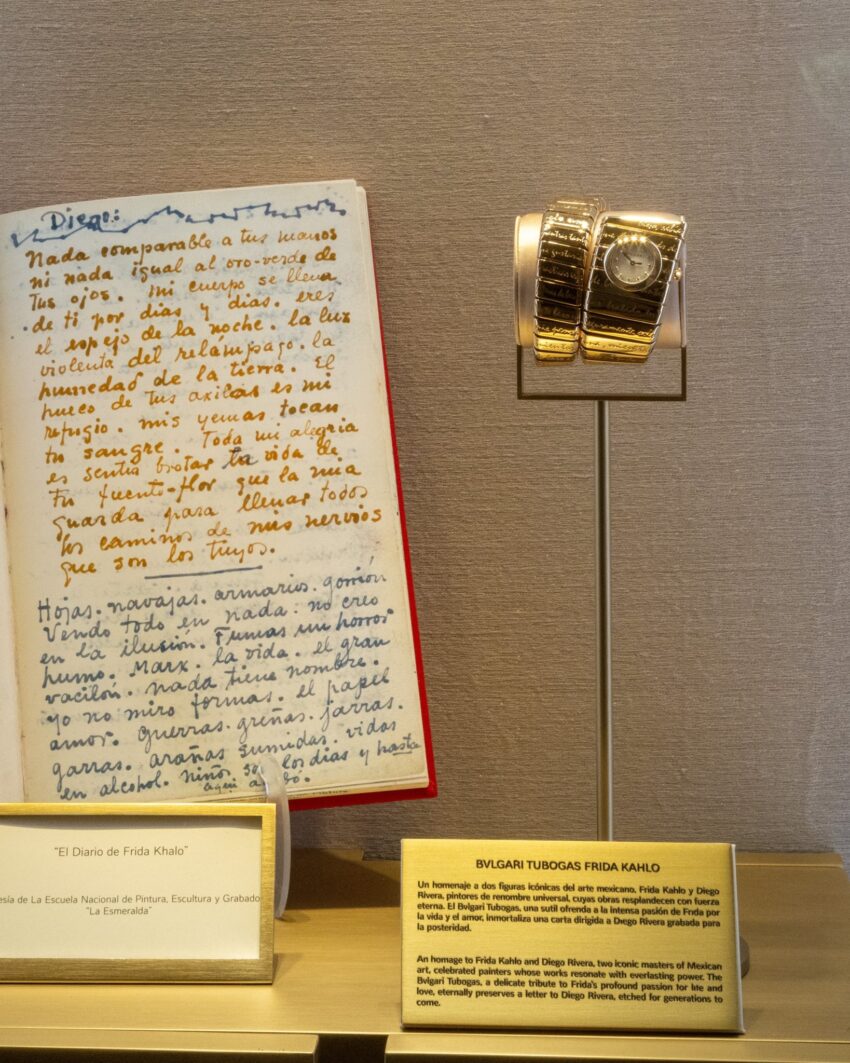 Diego:
Nada comparable a tus manos
ni nada igual al oro-verde de
tus ojos. mi cuerpo se llena
de ti por dias y dias. eres
el espejo de la noche. la luz
violenta del relámpago. la
humedad de la tierra. El
hueco de tus axilas es mi
refugio. mis yemas tocan
tu sangre. Toda mi alegria
es sentir brotar la vida de
tu fuente-flor que la mia
guarda para llenar todos
los caminos de mis nervios
que son los tuyos.
Hojas. navajas. armarios. gorrión
Vendo todo en nada. no creo
en la ilusión. Fumas un horror
humo. Marx. la vida. el gran
vacilón. nada tiene nombre.
yo no miro formas. el papel
amor. guerras. greñas. jarras.
garras. arañas sumidas. vidas
en alcohol. niños los dias y hasta
aqui
"El Diario de Frida Khalo"
esía de La Escuela Nacional de Pintura, Escultura y Grabado
"La Esmeralda"
BVLGARI TUBOGAS FRIDA KAHLO
Un homenaje a dos figuras icónicas del arte mexicano, Frida Kahlo y Diego
Rivera, pintores de renombre universal, cuyas obras resplandecen con fuerza
eterna. El Bvlgari Tubogas, una sutil ofrenda a la intensa pasión de Frida por
la vida y el amor, inmortaliza una carta dirigida a Diego Rivera grabada para
la posteridad.
An homage to Frida Kahlo and Diego Rivera, two iconic masters of Mexican
art, celebrated painters whose works resonate with everlasting power. The
Bvlgari Tubogas, a delicate tribute to Frida's profound passion for life and
love, eternally preserves a letter to Diego Rivera, etched for generations to
come.